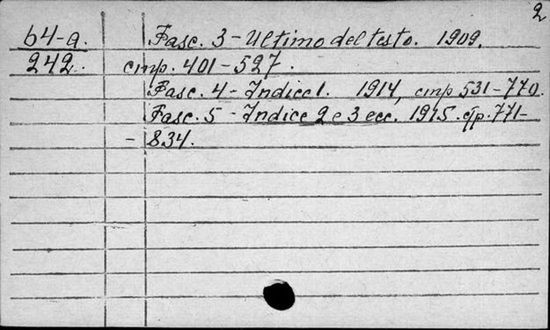 2
64-a. Fasc. 3 - Ultimo del testo. 1909.
242. стр. 401-527.
Fasc. 4 - Indice 1. 1914, стр 531-770.
Fasc. 5 - Indice 2 e 3 ecc. 1915. стр. 771-
- 834.